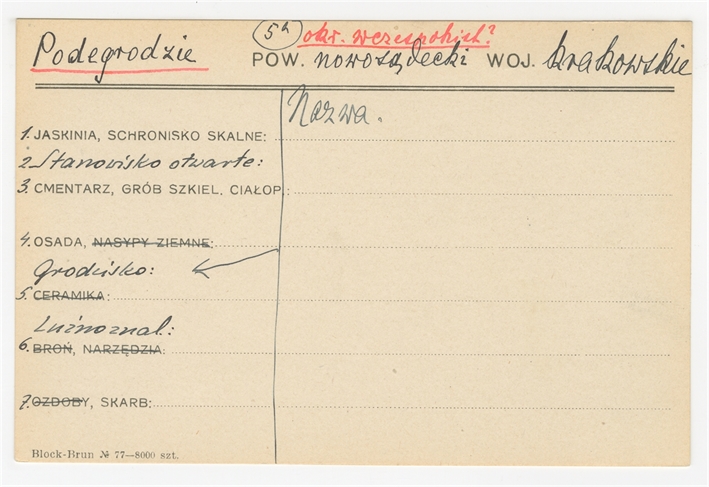 5a okr. wczesnohist?
Podegrodzie POW. nowosądecki WOJ. krakowskie
Nazwa.
1. JASKINIA, SCHRONISKO SKALNE:
2. Stanowisko otwarte:
3. CMENTARZ, GRÓB SZKIEL. CIAŁOP.:
4. OSADA, NASYPY ZIEMNE:
Grodzisko:
5. CERAMIKA:
Luźno znal.:
6. BROŃ, NARZĘDZIA:
7. OZDOBY, SKARB:
Block-Brun № 77—8000 szt.